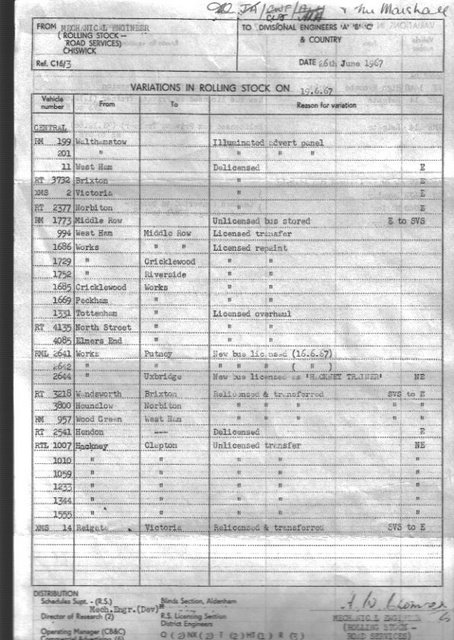 & Mr Marshall
FROM MECHANICAL ENGINEER TO DIVISIONAL ENGINEERS 'A' 'B' 'C'
(ROLLING STOCK — & COUNTRY
ROAD SERVICES)
CHISWICK
Ref. C16/3 DATE 26th June 1967
VARIATIONS IN ROLLING STOCK ON 19.6.67
Vehicle number From To Reason for variation
CENTRAL
RM 199 Walthamstow Illuminated advert panel
201 " " " "
11 West Ham Delicensed E
RT 3732 Brixton " E
XMS 2 Victoria " E
RT 2377 Norbiton " E
RM 1773 Middle Row Unlicensed bus stored E to SVS
994 West Ham Middle Row Licensed transfer
1686 Works " " Licensed repaint
1729 " Cricklewood " "
1752 " Riverside " "
1685 Cricklewood Works " "
1669 Peckham " " "
1331 Tottenham " Licensed overhaul
RT 4135 North Street " " "
4085 Elmers End " " "
RML 2641 Works Putney New bus licensed (16.6.67)
2642 " " " " " ( " )
2644 " Uxbridge New bus licensed as 'BLANKET TRAINER' NE
RT 3218 Wandsworth Brixton Relicensed & transferred SVS to E
3800 Hounslow Norbiton " " " " "
RM 957 Wood Green West Ham " " " " "
RT 2541 Hendon --- Delicensed E
RTL 1007 Hackney Clapton Unlicensed transfer NE
1010 " " " " "
1059 " " " " "
1233 " " " " "
1344 " " " " "
1555 " " " " "
XMS 14 Reigate Victoria Relicensed & transferred SVS to E
DISTRIBUTION
Schedules Supt. - (R.S.) Blinds Section, Aldenham
Mech.Engr.(Dev)
Director of Research (2) R.S. Licensing Section
District Engineers
Operating Manager (CB&C)
MECHANICAL ENGINEER
(ROLLING STOCK —
ROAD SERVICES)